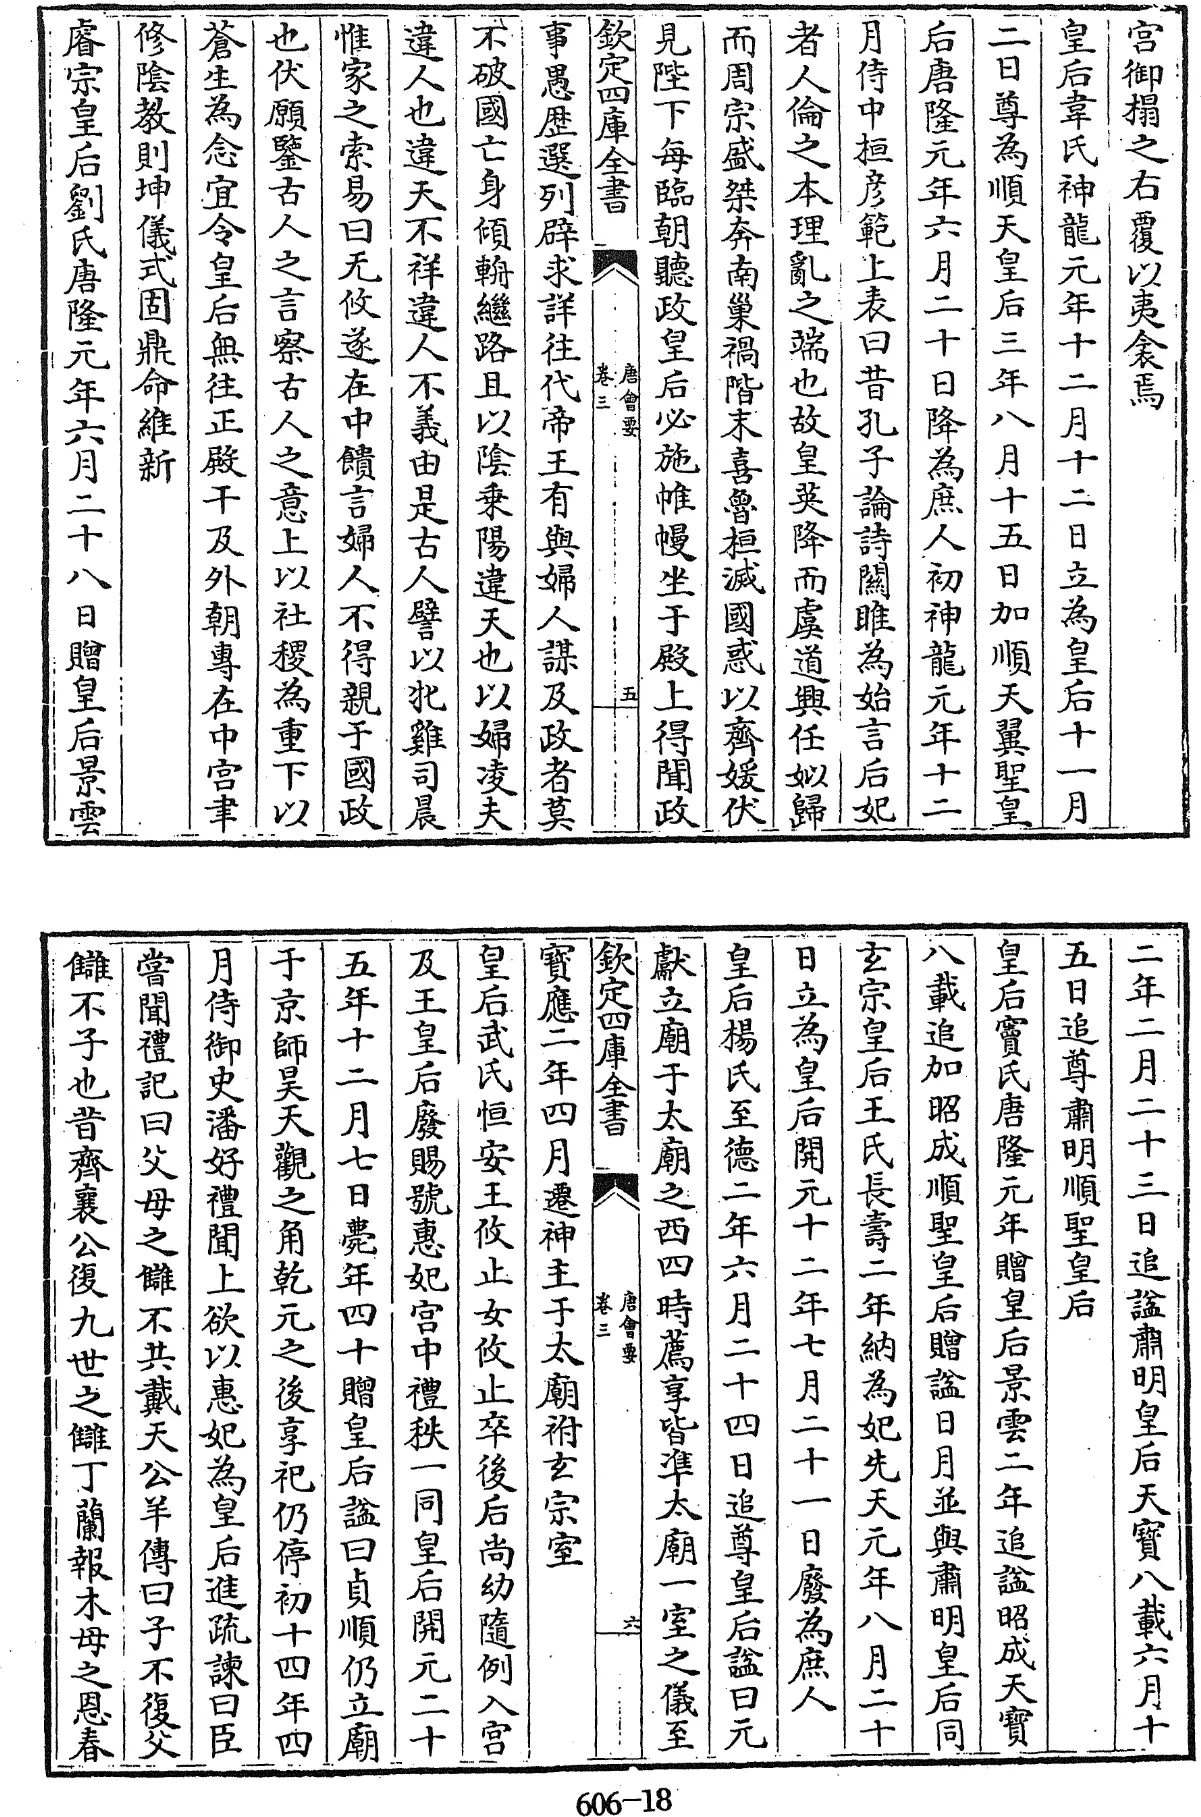 宫御榻之右覆以夷衾焉
皇后韋氏神龍元年十二月十二日立為皇后十一月
二日尊為順天皇后三年八月十五日加順天翼聖皇
后唐隆元年六月二十日降為庶人初神龍元年十二
月侍中桓彦範上表曰昔孔子論詩關雎為始言后妃
者人倫之本理亂之端也故皇英降而虞道興任姒歸
而周宗盛桀奔南巢禍階末喜魯桓滅國惑以齊媛伏
見陛下每臨朝聽政皇后必施帷幔坐于殿上得聞政
欽定四庫全書 唐會要 卷三 五
事愚歴選列辟求詳往代帝王有與婦人謀及政者莫
不破國亡身傾輈繼路且以陰乗陽違天也以婦凌夫
違人也違天不祥違人不義由是古人譬以牝雞司晨
惟家之索易曰无攸遂在中饋言婦人不得親于國政
也伏願鑒古人之言察古人之意上以社稷為重下以
蒼生為念宜令皇后無往正殿干及外朝專在中宫聿
修陰教則坤儀式固鼎命維新
睿宗皇后劉氏唐隆元年六月二十八日贈皇后景雲
二年二月二十三日追諡肅明皇后天寳八載六月十
五日追尊肅明順聖皇后
皇后竇氏唐隆元年贈皇后景雲二年追諡昭成天寳
八載追加昭成順聖皇后贈諡日月並與肅明皇后同
玄宗皇后王氏長壽二年納為妃先天元年八月二十
日立為皇后開元十二年七月二十一日廢為庶人
皇后楊氏至德二年六月二十四日追尊皇后諡曰元
獻立廟于太廟之西四時薦享皆準太廟一室之儀至
欽定四庫全書 唐會要 卷三 六
寳應二年四月遷神主于太廟祔玄宗室
皇后武氏恒安王攸止女攸止卒後后尚幼隨例入宫
及王皇后廢賜號惠妃宫中禮秩一同皇后開元二十
五年十二月七日薨年四十贈皇后諡曰貞順仍立廟
于京師昊天觀之角乾元之後享祀仍停初十四年四
月侍御史潘好禮聞上欲以惠妃為皇后進疏諫曰臣
嘗聞禮記曰父母之讎不共戴天公羊傳曰子不復父
讎不子也昔齊襄公復九世之讎丁蘭報木母之恩春
606-18